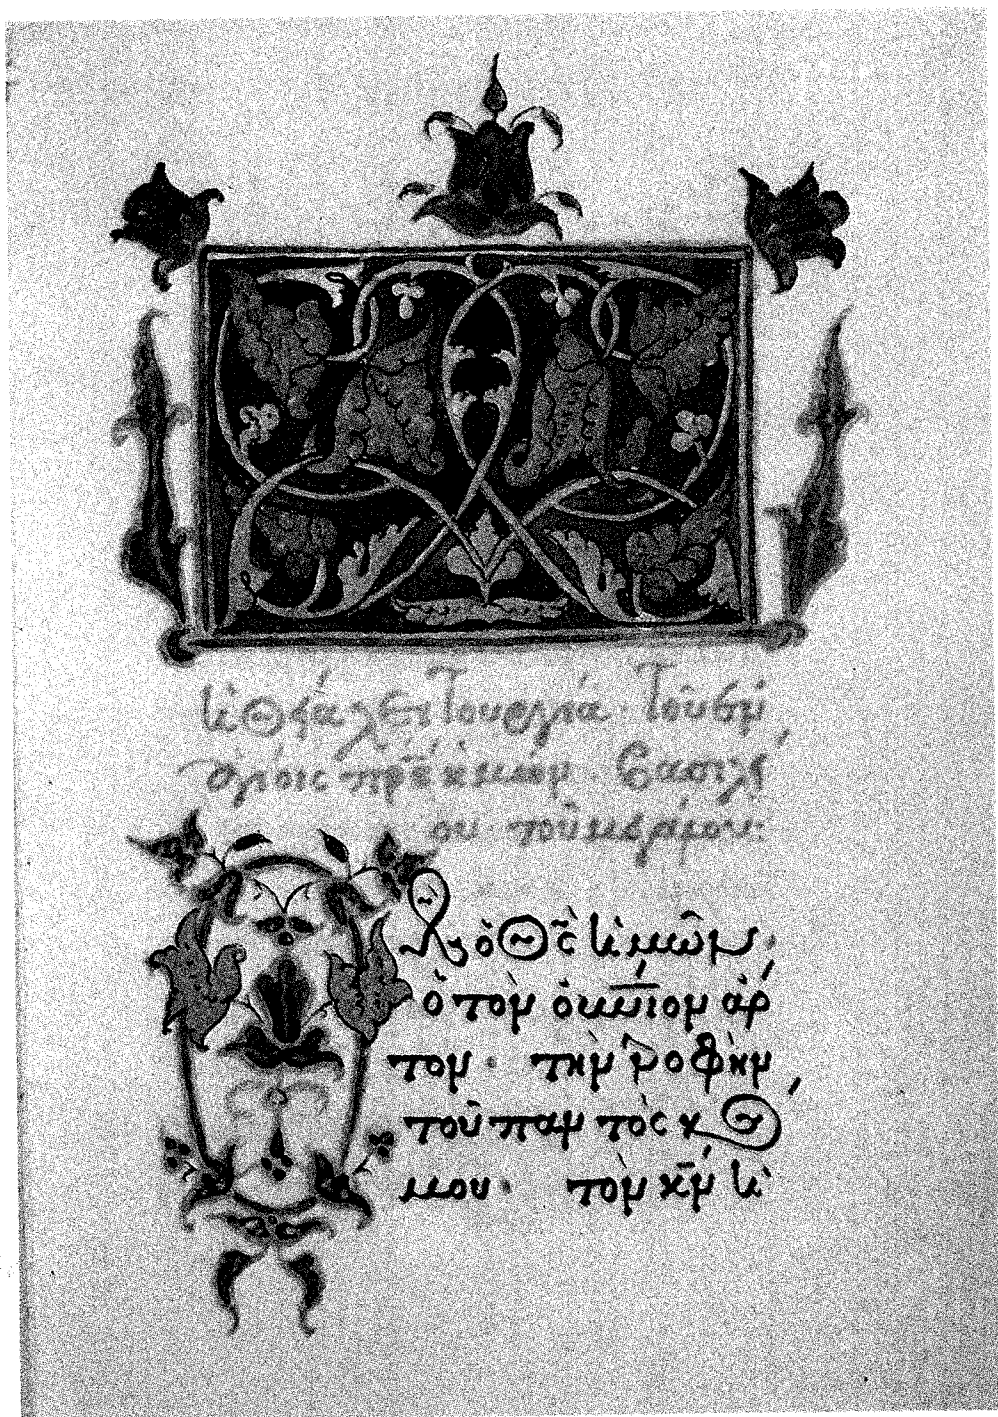 ἡ θεία λειτουργία τοῦ ἐν
ἁγίοις πρς ἡμῶν Βασιλεί
ου τοῦ μεγάλου:
Ὁ Θς ὁ Θς ἡμῶν,
ὁ τὸν οὐνιον ἄρ
τον · τὴν τροφὴν
τοῦ παντὸς κό
σμου · τὸν κν ἡ